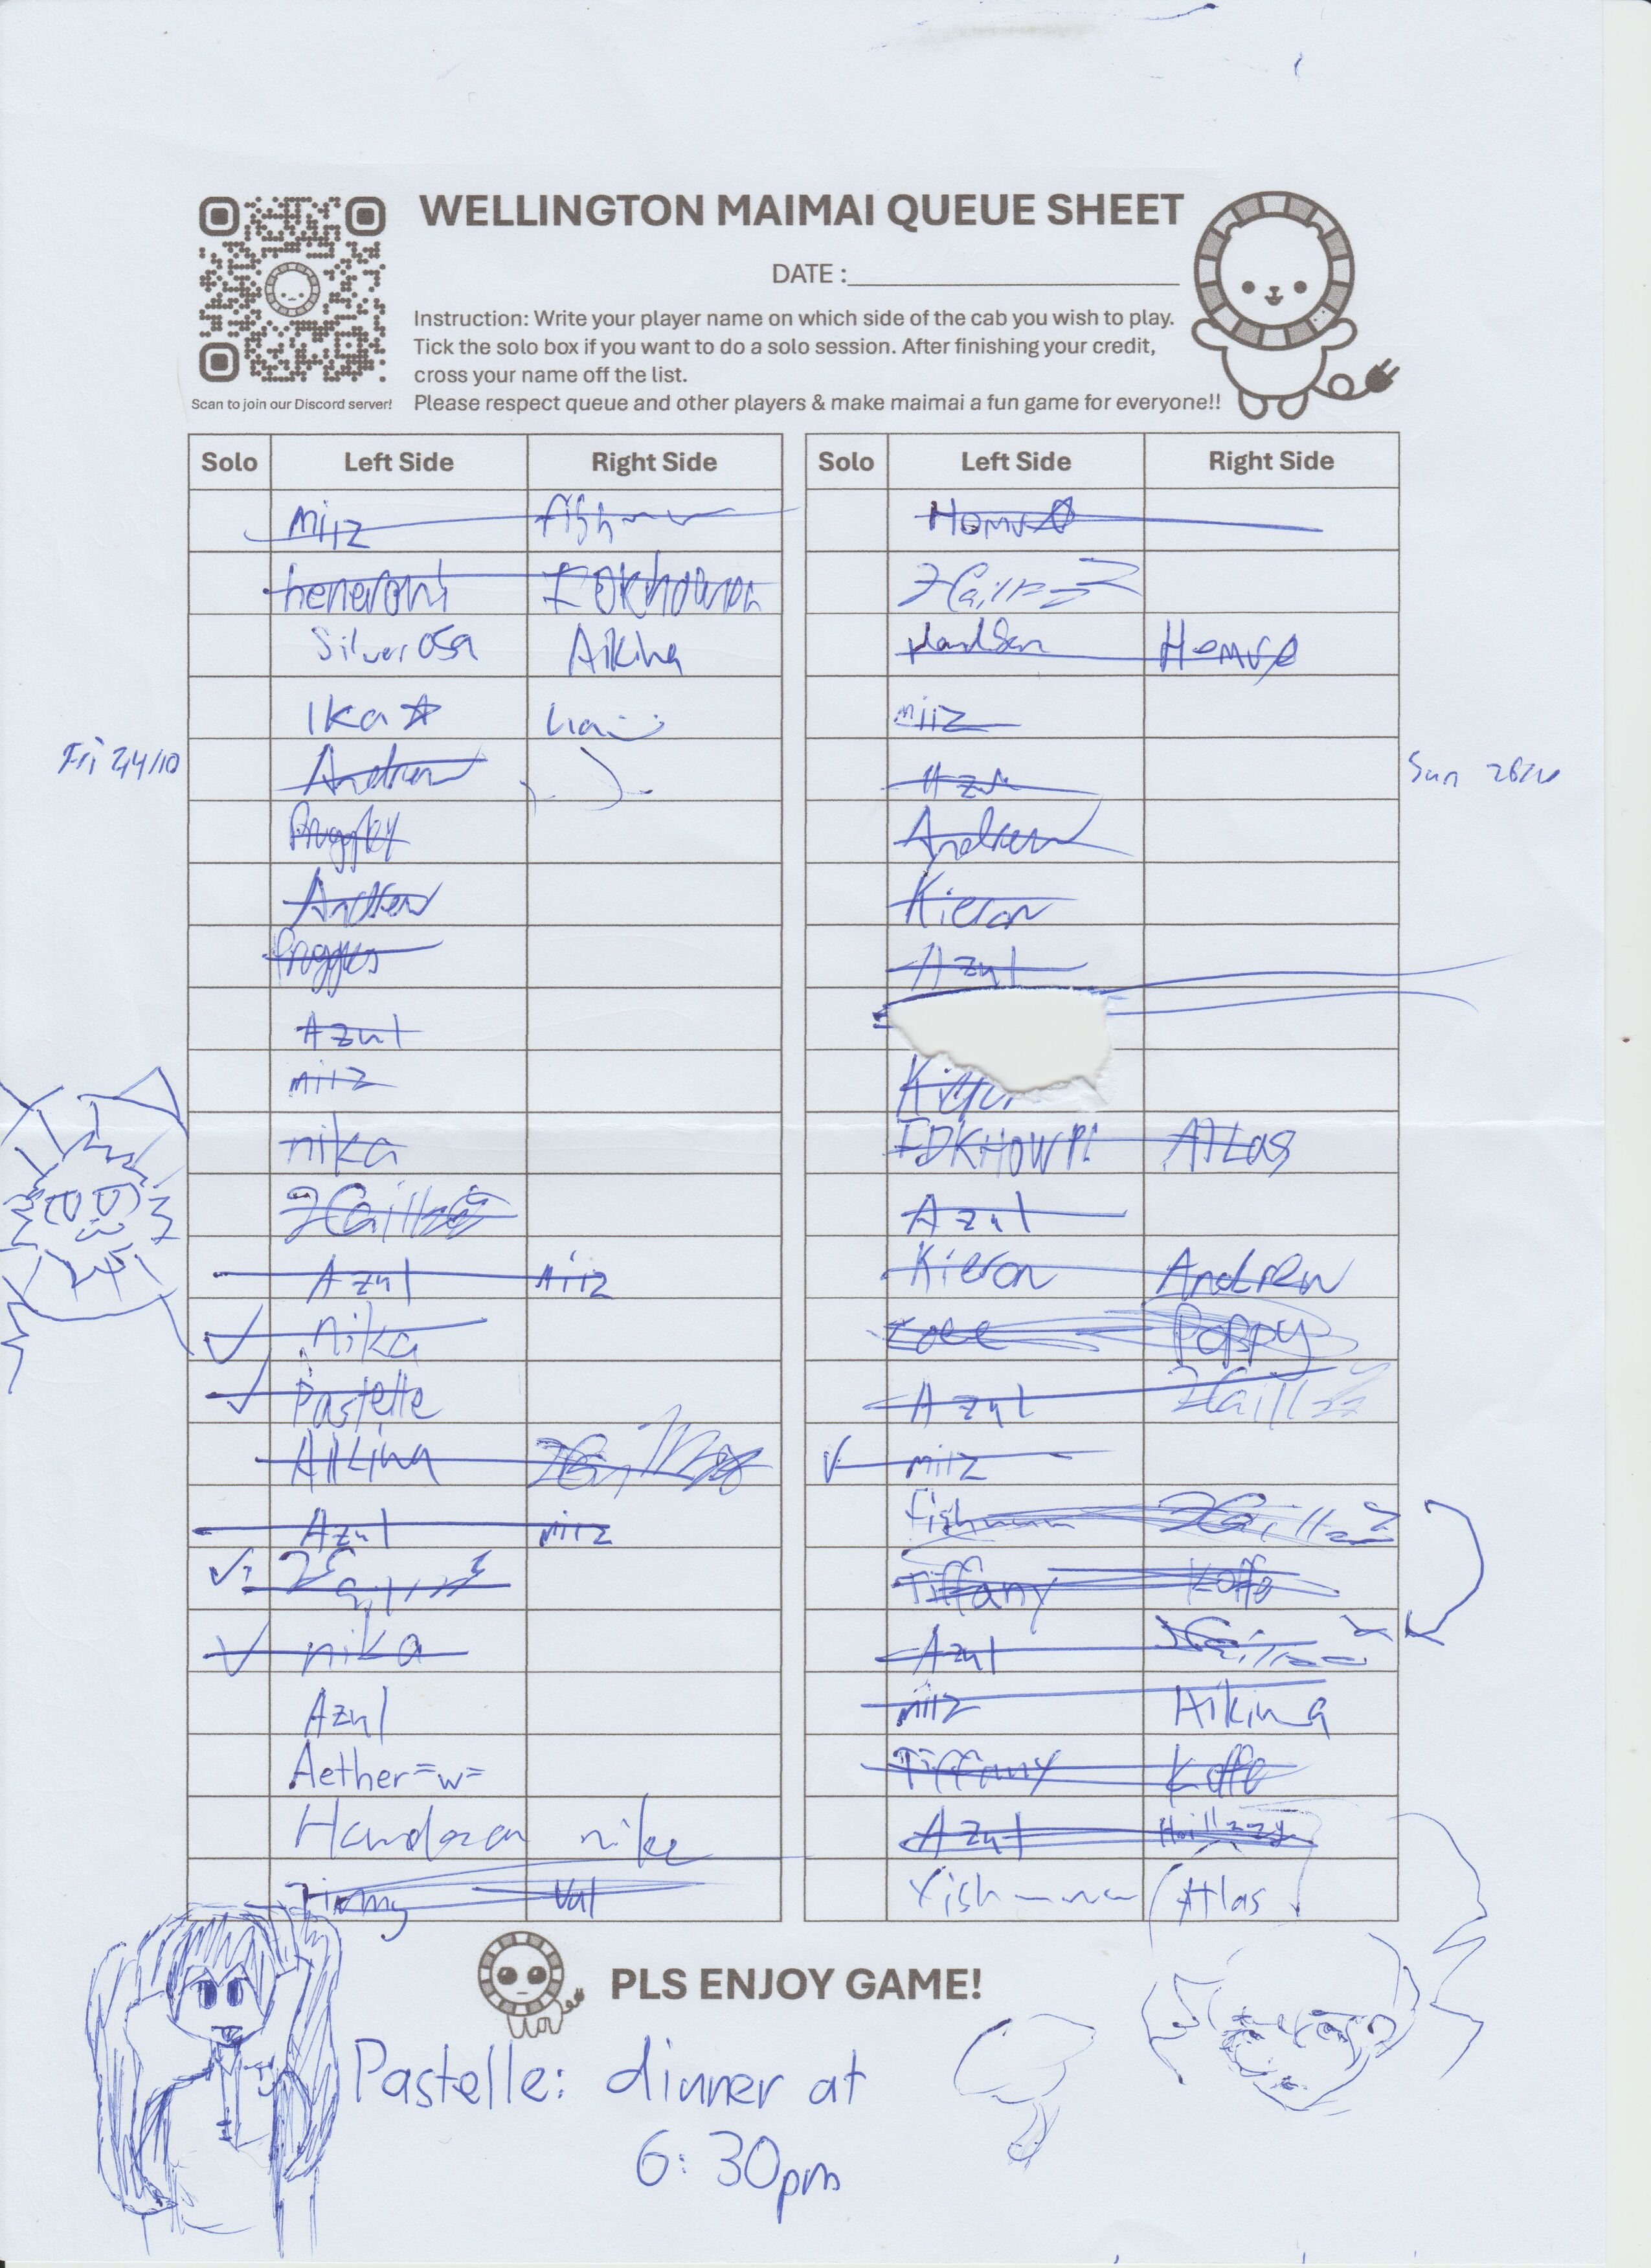 WELLINGTON MAIMAI QUEUE SHEET
DATE :
Instruction: Write your player name on which side of the cab you wish to play.
Tick the solo box if you want to do a solo session. After finishing your credit,
cross your name off the list.
Please respect queue and other players & make maimai a fun game for everyone!!
Scan to join our Discord server!
Solo Left Side Right Side
miiz
Silver05a Aikina
Ika☆
Fri 24/10
Andrew
Andrew
Azul
miiz
nika
Azul miiz
✓ nika
✓ Pastelle
Aikina
Azul miiz
✓
✓ nika
Azul
Aether=w=
nika
Val
Solo Left Side Right Side
miiz
Sun
Azul
Andrew
Kieron
Azul
Atlas
Azul
Kieron Andrew
Poppy
Azul
✓ miiz
Tiffany Koffe
Azul
miiz Aikina
Tiffany Koffe
Azul
Atlas
PLS ENJOY GAME!
Pastelle: dinner at
6:30pm